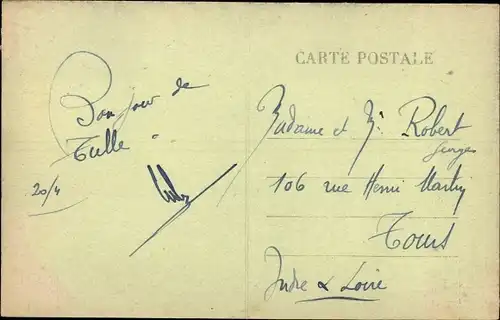 CARTE POSTALE
Bonjour de
Tulle.
20/4
Madame et Mr Robert
Georges
106 rue Henri Martin
Tours
Indre & Loire